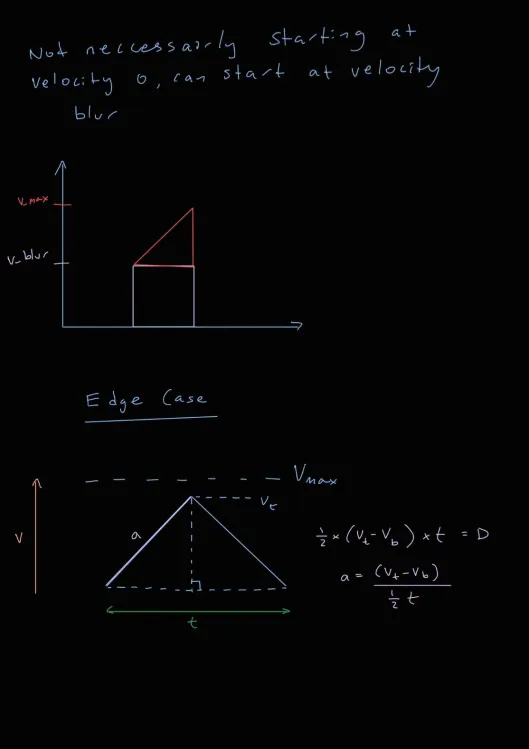 Not neccessairly starting at
velocity 0, can start at velocity
blur
v_max
v_blur
Edge Case
Vmax
Vt
V
a
½ × (Vt - Vb) × t = D
a = (Vt - Vb)
½ t
t